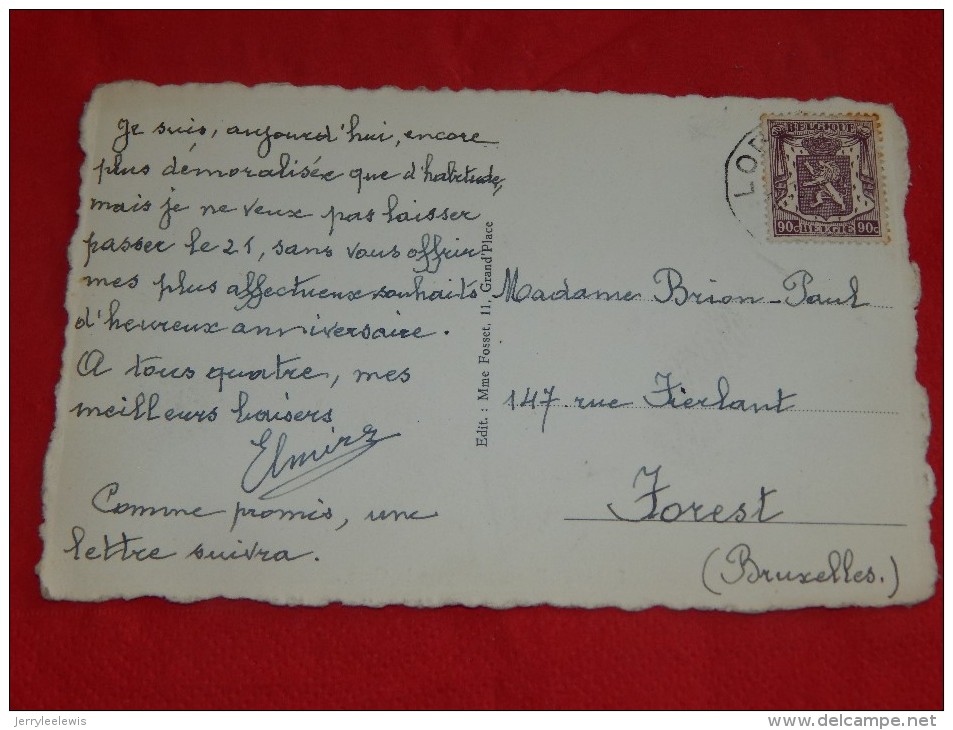 Je suis, aujourd'hui, encore
plus démoralisée que d'habitude,
mais je ne veux pas laisser
passer le 21, sans vous offrir
mes plus affectueux souhaits
d'heureux anniversaire.
A tous quatre, mes
meilleurs baisers
Elmire
Comme promis, une
lettre suivra.
Edit. : Mme Fosset, 11, Grand'Place
LO
BELGIQUE
90c BELGIE 90c
Madame Brion-Paul
147 rue Fierlant
Forest
(Bruxelles.)
jerryleelewis
www.delcampe.net